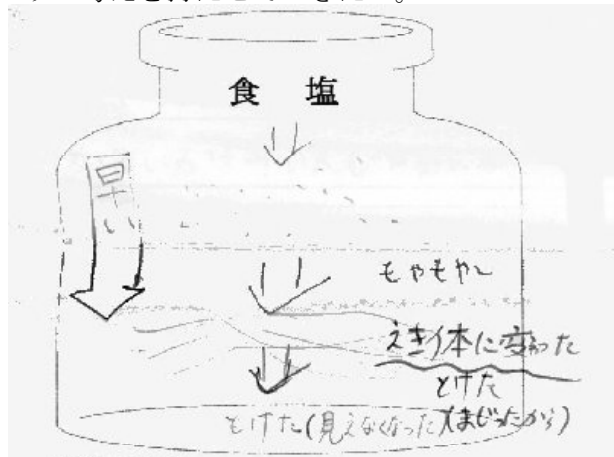 食 塩
早い
もやもや〜
えき体に変わった
とけた
とけた(見えなくなった)(まじったから)